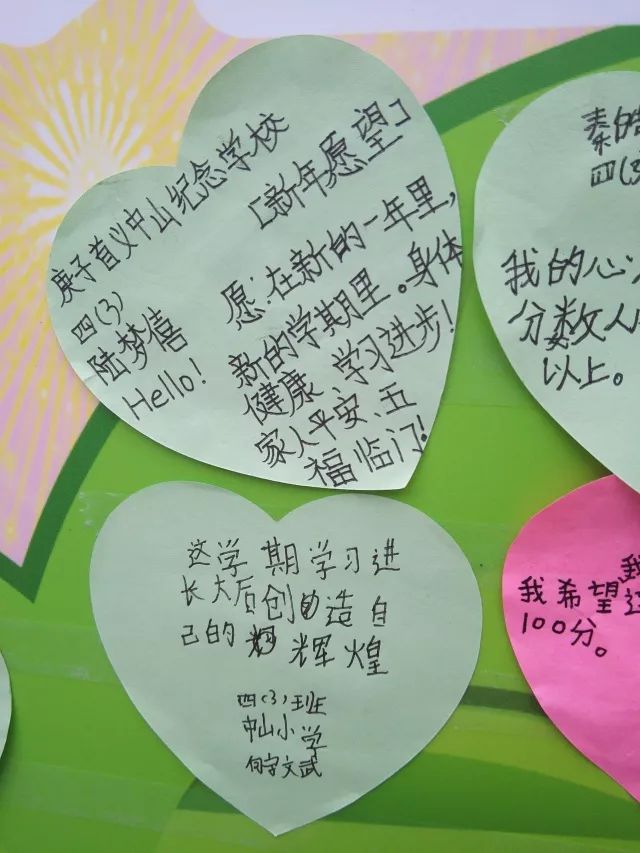 庚子首义中山纪念学校
四(3)
陆梦僖
Hello!
[新年愿望]
愿:在新的一年里,
新的学期里。身体
健康、学习进步!
家人平安、五
福临门!
四(3
我的心
分数人
以上。
这学期学习进
长大后创造自
己的辉煌
四(3)班
中山小学
何宇文武
我
我希望这
100分。